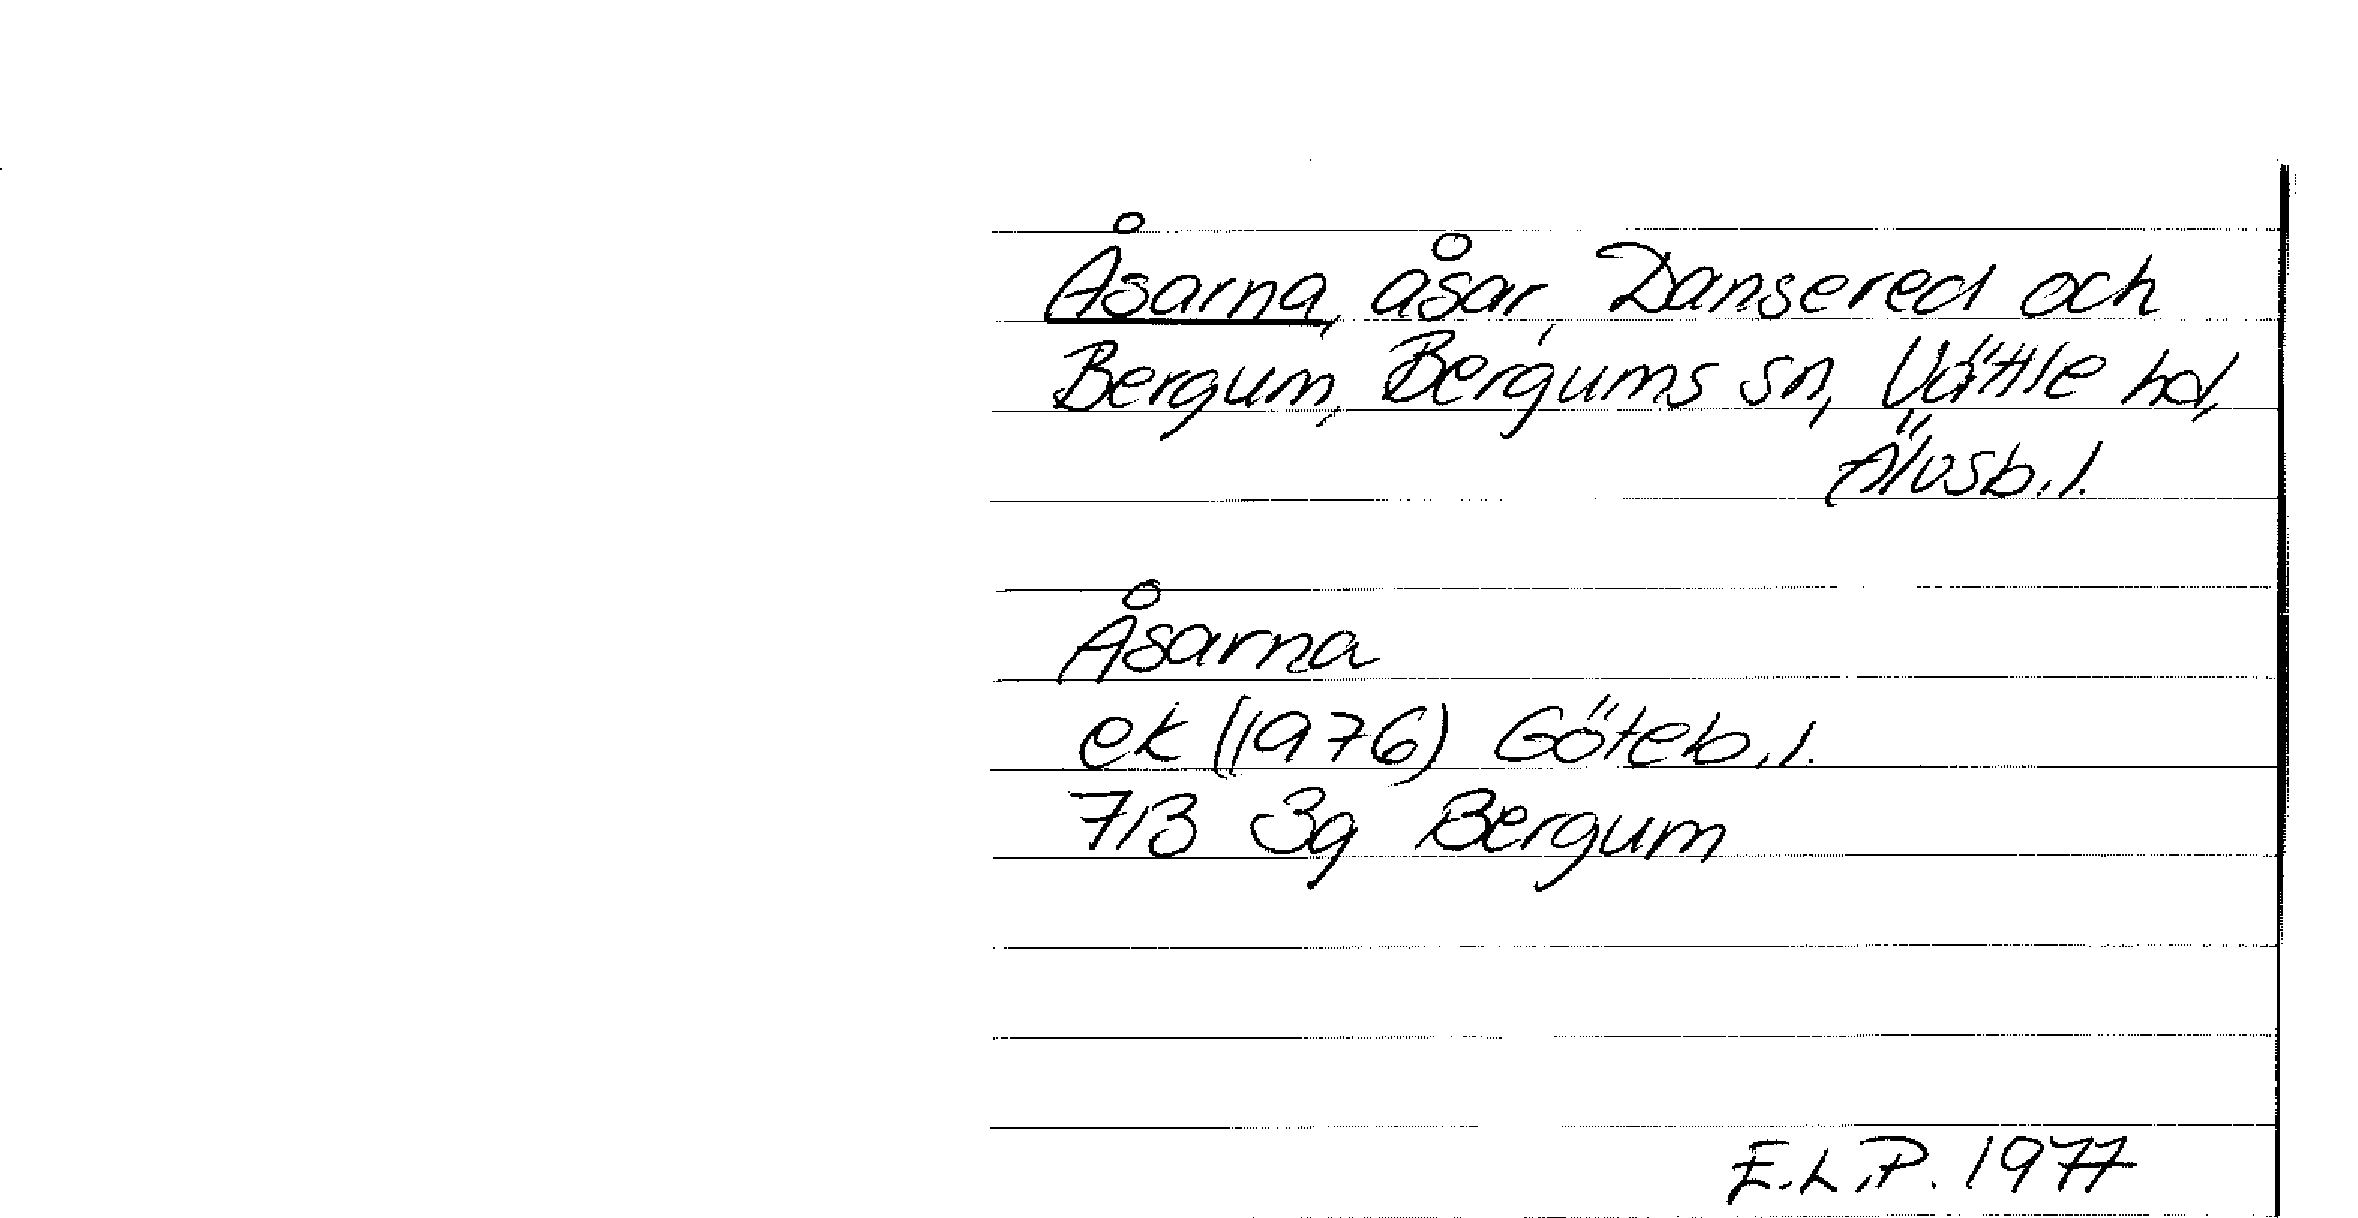 Åsarna, åsar, Dansered och
Bergum, Bergums sn, Vättle hd,
Älvsb. l.
Åsarna
ek (1976) Göteb. l.
7B 3g Bergum
E.L.P. 1977